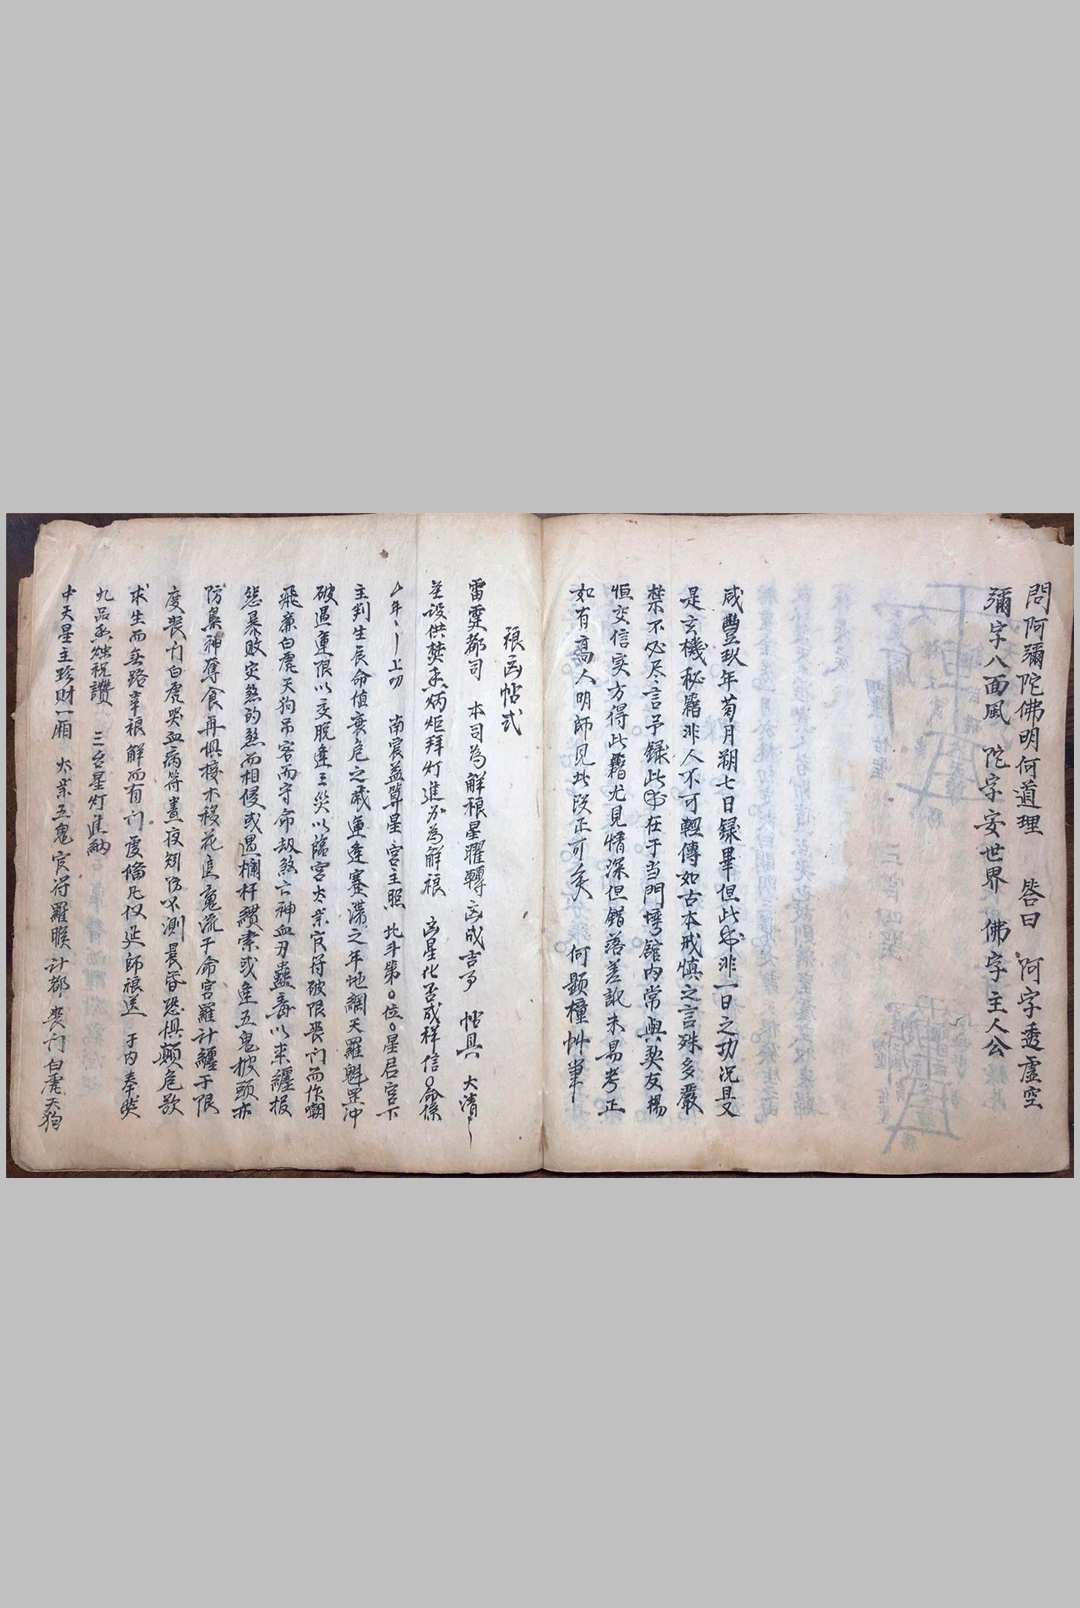 問阿彌陀佛明何道理 答曰 阿字透虛空
彌字八面風 陀字安世界 佛字主人公
咸豐玖年菊月朔七日録畢但此书非一日之功況且又
是玄機秘竊非人不可輕傳如古本戒慎之言殊多嚴
禁不必尽言予録此书在于当門塆館内常與契友楊
恒交信实方得此書尤見情深但錯落差訛未易考正
如有高人明師見此改正可矣 何顯橦艸筆
禳凶帖式
雷霆都司 本司為解禳星曜轉凶成吉事 帖具 大清
姜設供焚香炳炬拜灯進分為解禳 凶星化吉成祥信○命係
厶年 上叩 南宸益算星宮主照 北斗第○位○星君宮下
主判生辰命值衰危之歲運逢蹇滯之年地網天羅魁罡冲
破過運限以交脫逢三災以臨宮大業官符破限丧门而作嘲
飛廉白虎天狗吊客而守命刼煞亡神血刃蠱毒以来纏报
怨暴敗灾煞的煞而相侵或遇欄杆縲索或逢五鬼披頭亦
防梟神奪食再俱接木移花追魂流于命宮羅計纏于限
度丧门白虎哭血病符晝夜知防不測晨昏恐惧顛危欲
求生而無路幸禳解而有门虔僃凡仪延師禳送 于内奉獎
九品香燭祝讚 三台星灯進納
中天星主珍財一厢 大業五鬼官符羅睺計都 丧门白虎天狗